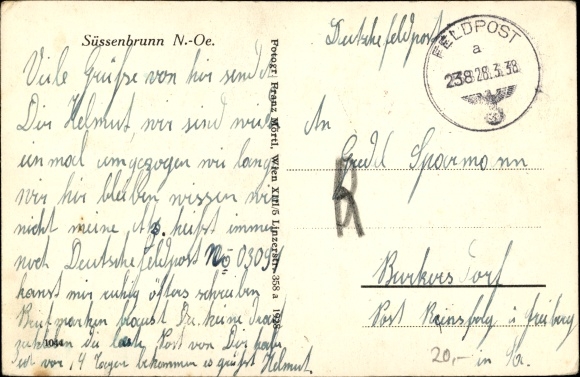 Süssenbrunn N.-Oe.
Viele Grüße von hir sendet
Dir Helmut, wir sind wider
einmal umgezogen wie lange
wir hir bleiben wissen wir
nicht meine heist immer
noch Deutsche feldpost No 0309
kanst mir ruhig öfters schreiben
Briefmarken braust Du keine
Post von Dir habe
ich vor 14 Tagen bekommen es grüßt Helmut.
1044
Fotogr. Franz Mörtl, Wien XIII/5 Linzerstr. 358 a 1928
Deutsche feldpost
FELDPOST
a
238 28.3.38
An
Gredel Sparmann
Burkersdorf
Post Reinsberg i. Freiberg
in Sa.
20,-